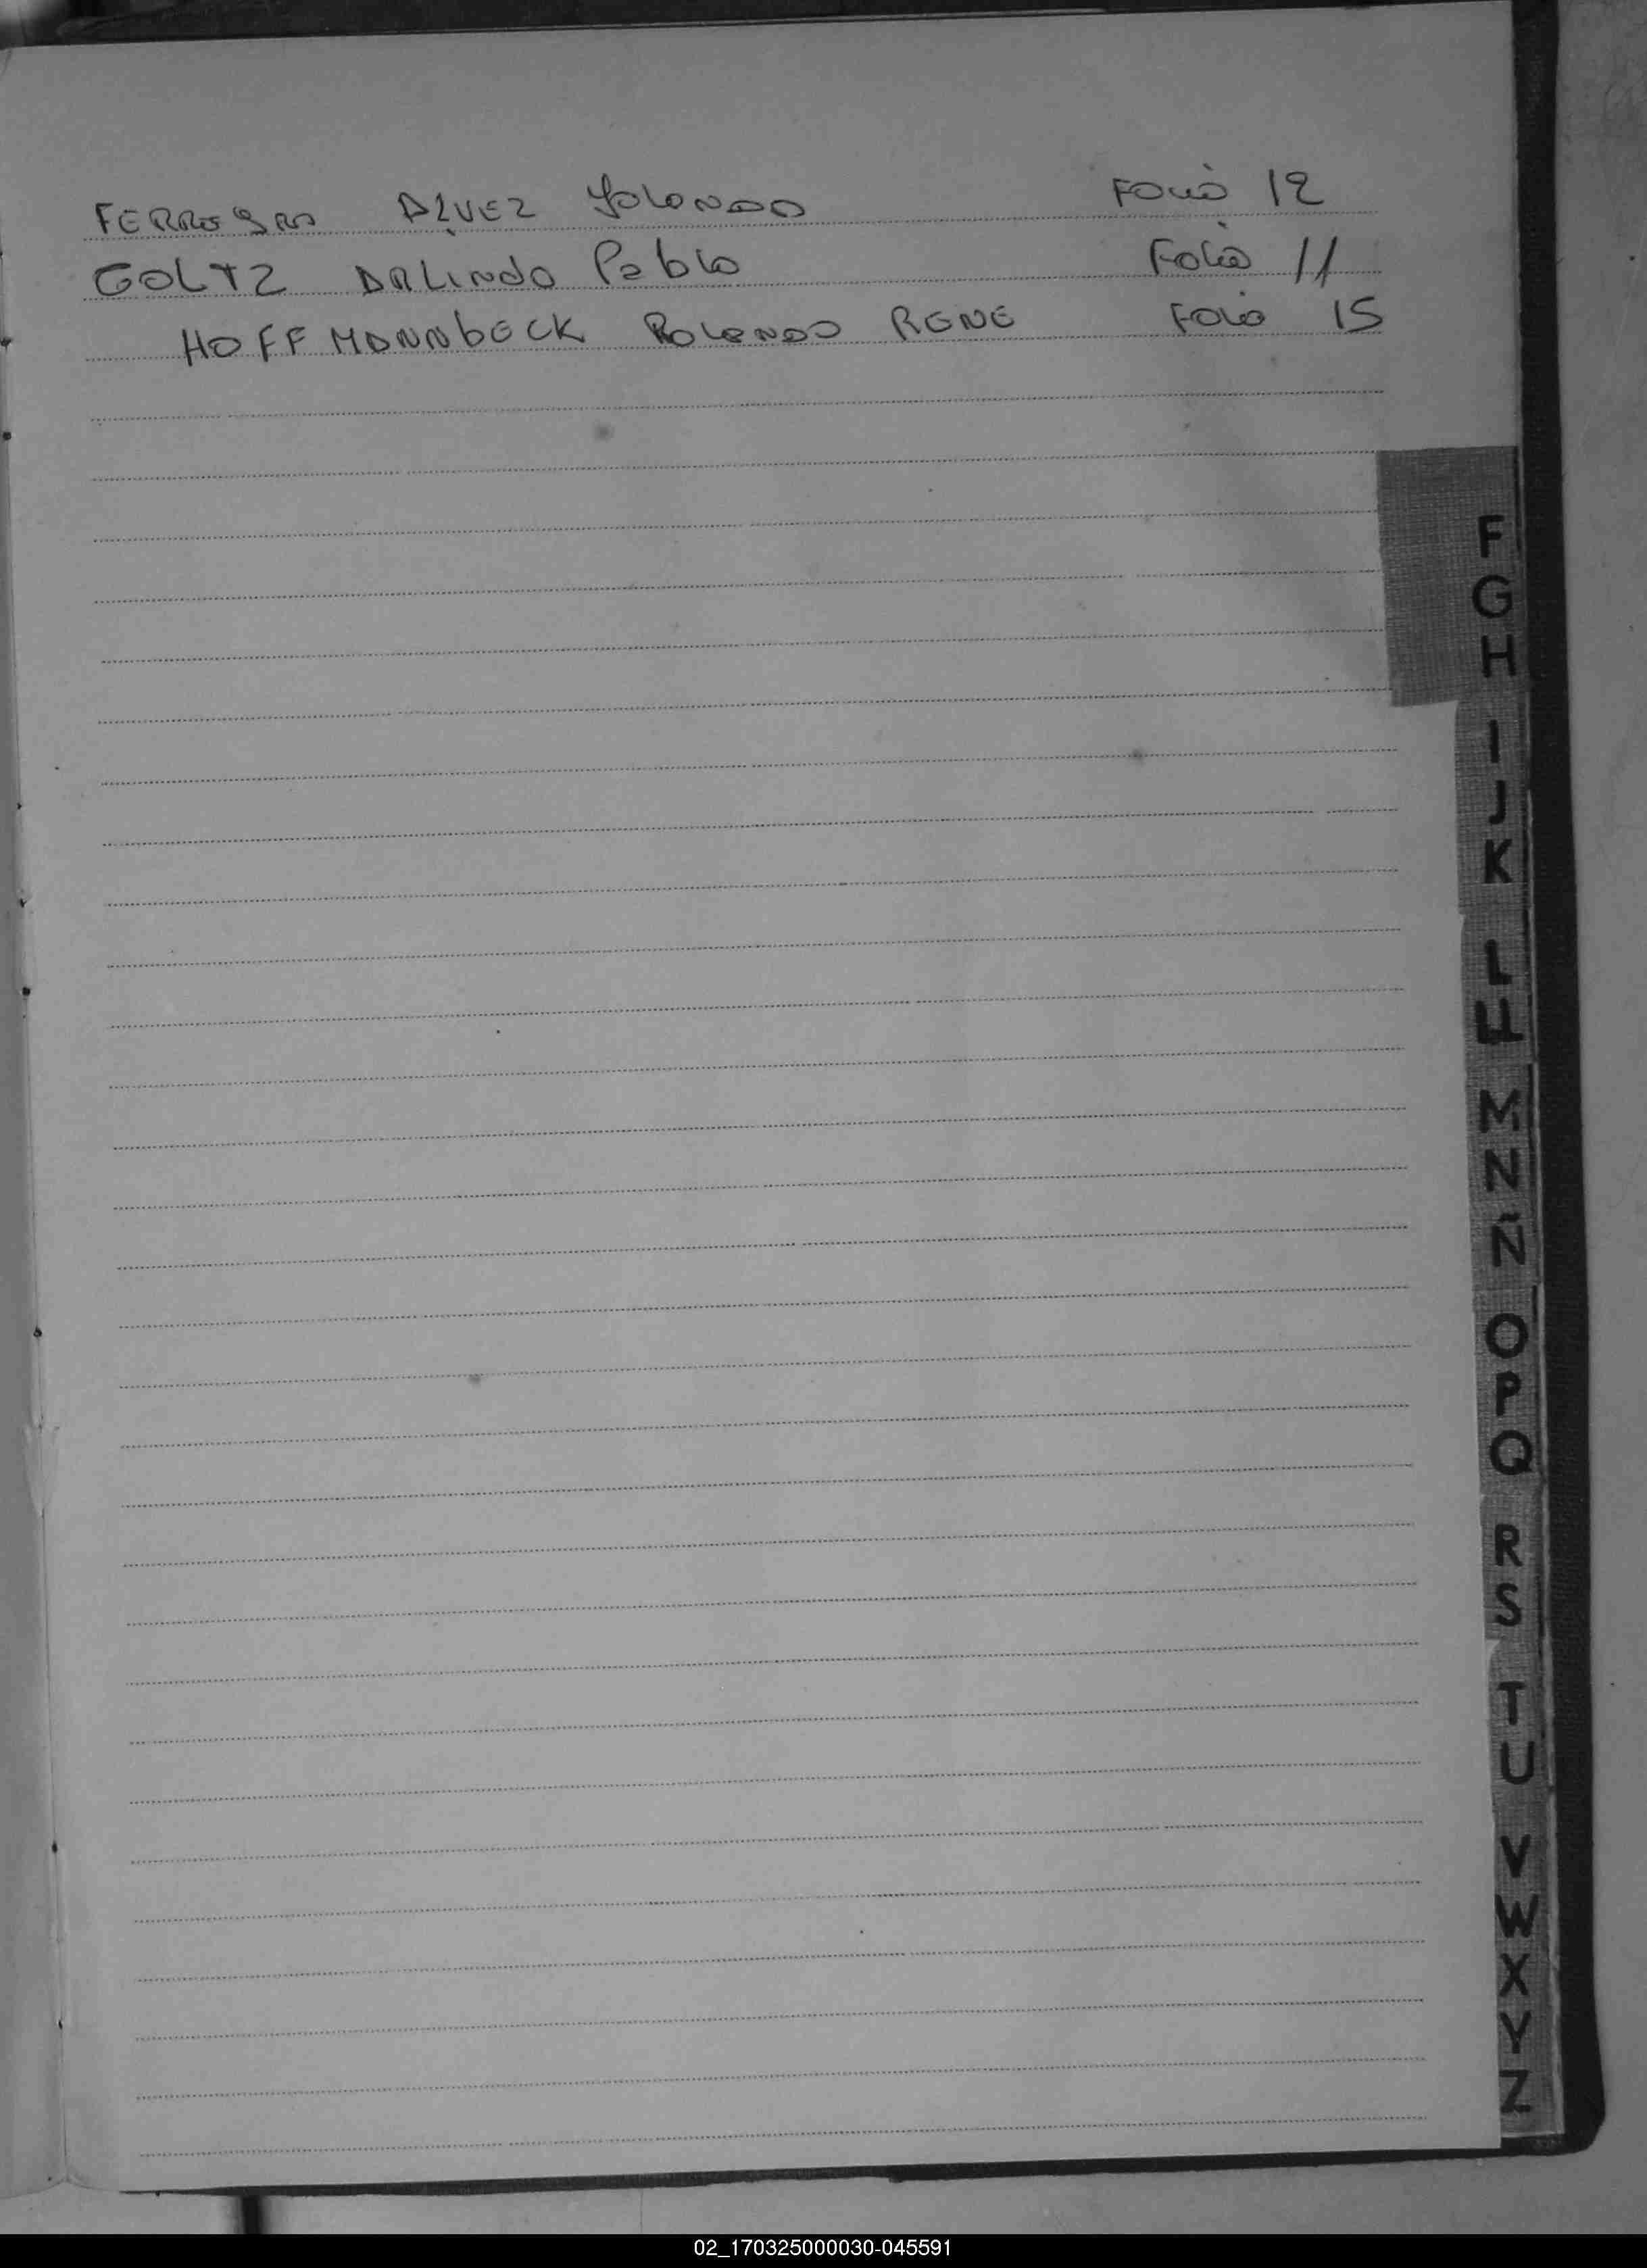 ALVEZ Yolanda Folio 12
GOLTZ ARLINDO Pablo Folio 11
HOFFMANNBECK Rolando RENE Folio 15
F
G
H
I
J
K
L
LL
M
N
Ñ
O
P
Q
R
S
T
U
V
W
X
Y
Z
02_170325000030-045591